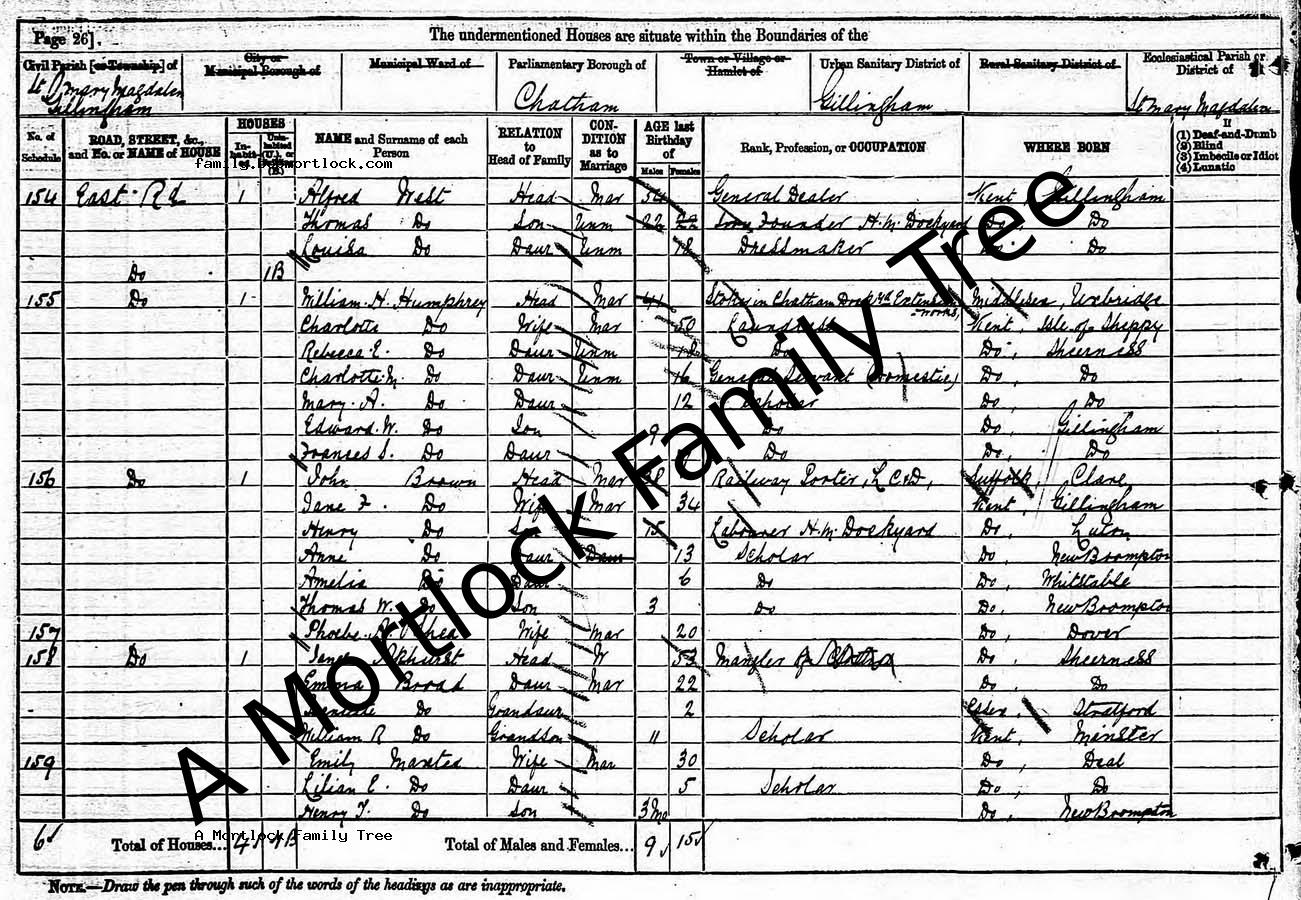 Page 26].
The undermentioned Houses are situate within the Boundaries of the
Civil Parish [or Township] of
City or Municipal Borough of
Municipal Ward of
Parliamentary Borough of
Town or Village or Hamlet of
Urban Sanitary District of
Rural Sanitary District of
Ecclesiastical Parish or District of
Mary Magdalen Gillingham
Chatham
Gillingham
St Mary Magdalen
No. of Schedule
ROAD, STREET, &c., and No. or NAME of HOUSE
HOUSES
In-habit-ed
Unin-habited (U.), or (B.)
NAME and Surname of each Person
RELATION to Head of Family
CON-DITION as to Marriage
AGE last Birthday of
Males
Females
Rank, Profession, or OCCUPATION
WHERE BORN
If
(1) Deaf-and-Dumb
(2) Blind
(3) Imbecile or Idiot
(4) Lunatic
family.b mortlock.com
154 East Rd 1 Alfred West Head Mar 54 General Dealer Kent Gillingham
Thomas Do Son Unm 22 22 Iron Founder H.M. Dockyard Do Do
Louisa Do Daur Unm 18 Dressmaker Do
Do 1B
155 Do 1 William H. Humphrey Head Mar 41 Chatham Dockyd Extension Works, Middlesex, Uxbridge
Charlotte Do Wife Mar 50 Laundress Kent, Isle of Sheppy
Rebecca E. Do Daur Unm 18 Do Do, Sheerness
Charlotte M. Do Daur Unm 16 General Servant (Domestic) Do, Do
Mary A. Do Daur 12 Scholar Do, Do
Edward W. Do Son 9 Do Do, Gillingham
Frances S. Do Daur Do Do, Do
156 Do 1 John Brown Head Mar 38 Railway Porter, L C & D, Suffolk, Clare
Jane F. Do Wife Mar 34 Kent, Gillingham
Henry Do Son 15 Labourer H.M. Dockyard Do, Luton
Anne Do Daur Daur 13 Scholar Do, New Brompton
Amelia Do Daur 6 Do Do, Whitstable
Thomas W. Do Son 3 Do Do, New Brompton
157 Phoebe A. O'Shea Wife Mar 20 Do, Dover
158 Do 1 Jane Akhurst Head W 53 Mangler of Clothes Do, Sheerness
Emma Broad Daur Mar 22 Do, Do
Do Grandaur 2 Essex, Stratford
William R Do Grandson 11 Scholar Kent, Minster
159 Emily Marsted Wife Mar 30 Do, Deal
Lilian E. Do Daur 5 Scholar Do, Do
Henry T. Do Son 3 Mo Do, New Brompton
6 Total of Houses... 4 1B Total of Males and Females... 9 15
A Mortlock Family Tree
A Mortlock Family Tree
NOTE.—Draw the pen through such of the words of the headings as are inappropriate.